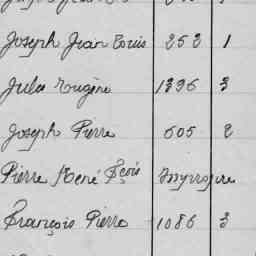 Joseph Jean Louis 253 1
Jules Eugène 1396 3
Joseph Pierre 605 2
Pierre René Fçois Impropre
François Pierre 1086 3